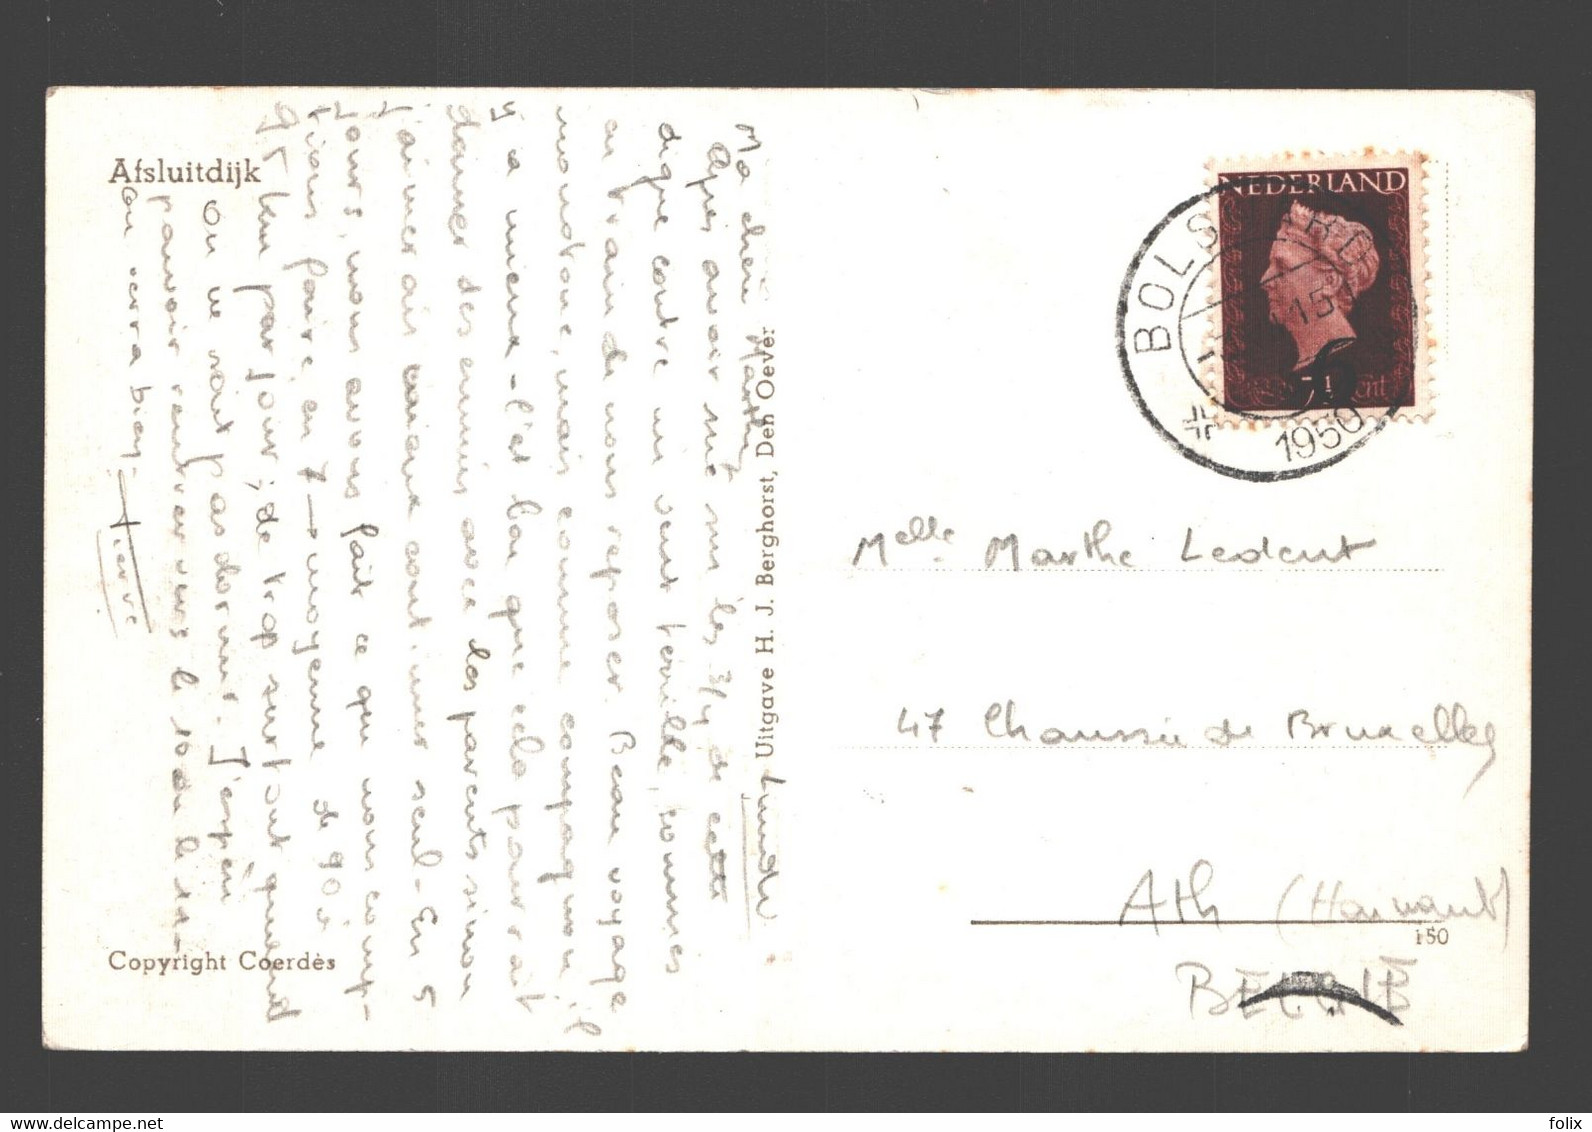 Afsluitdijk
Ma chère Marthe,
Après avoir sué sur les 3/4 de cette
digue contre un vent terrible, sommes
en train de nous reposer. Beau voyage
monotone, mais comme compagnon il
y a mieux - c'est bon que cela pourrait
donner des ennuis avec les parents sinon
j'aimerais continuer seul - En 5
jours, nous avons fait ce que nous comp-
tions faire en 7 → moyenne de 90 à
95 km par jour; de trop surtout quand
on ne sait pas dormir. J'espère
pouvoir rentrer vers le 10 ou le 11 -
on verra bien -
Pierre
Copyright Coerdès
Uitgave H. J. Berghorst, Den Oever
NEDERLAND
7½ cent
BOLSWARD
1950
Melle Marthe Ledent
47 Chaussée de Bruxelles
Ath (Hainaut)
150
BELGIË
delcampe.net
folix